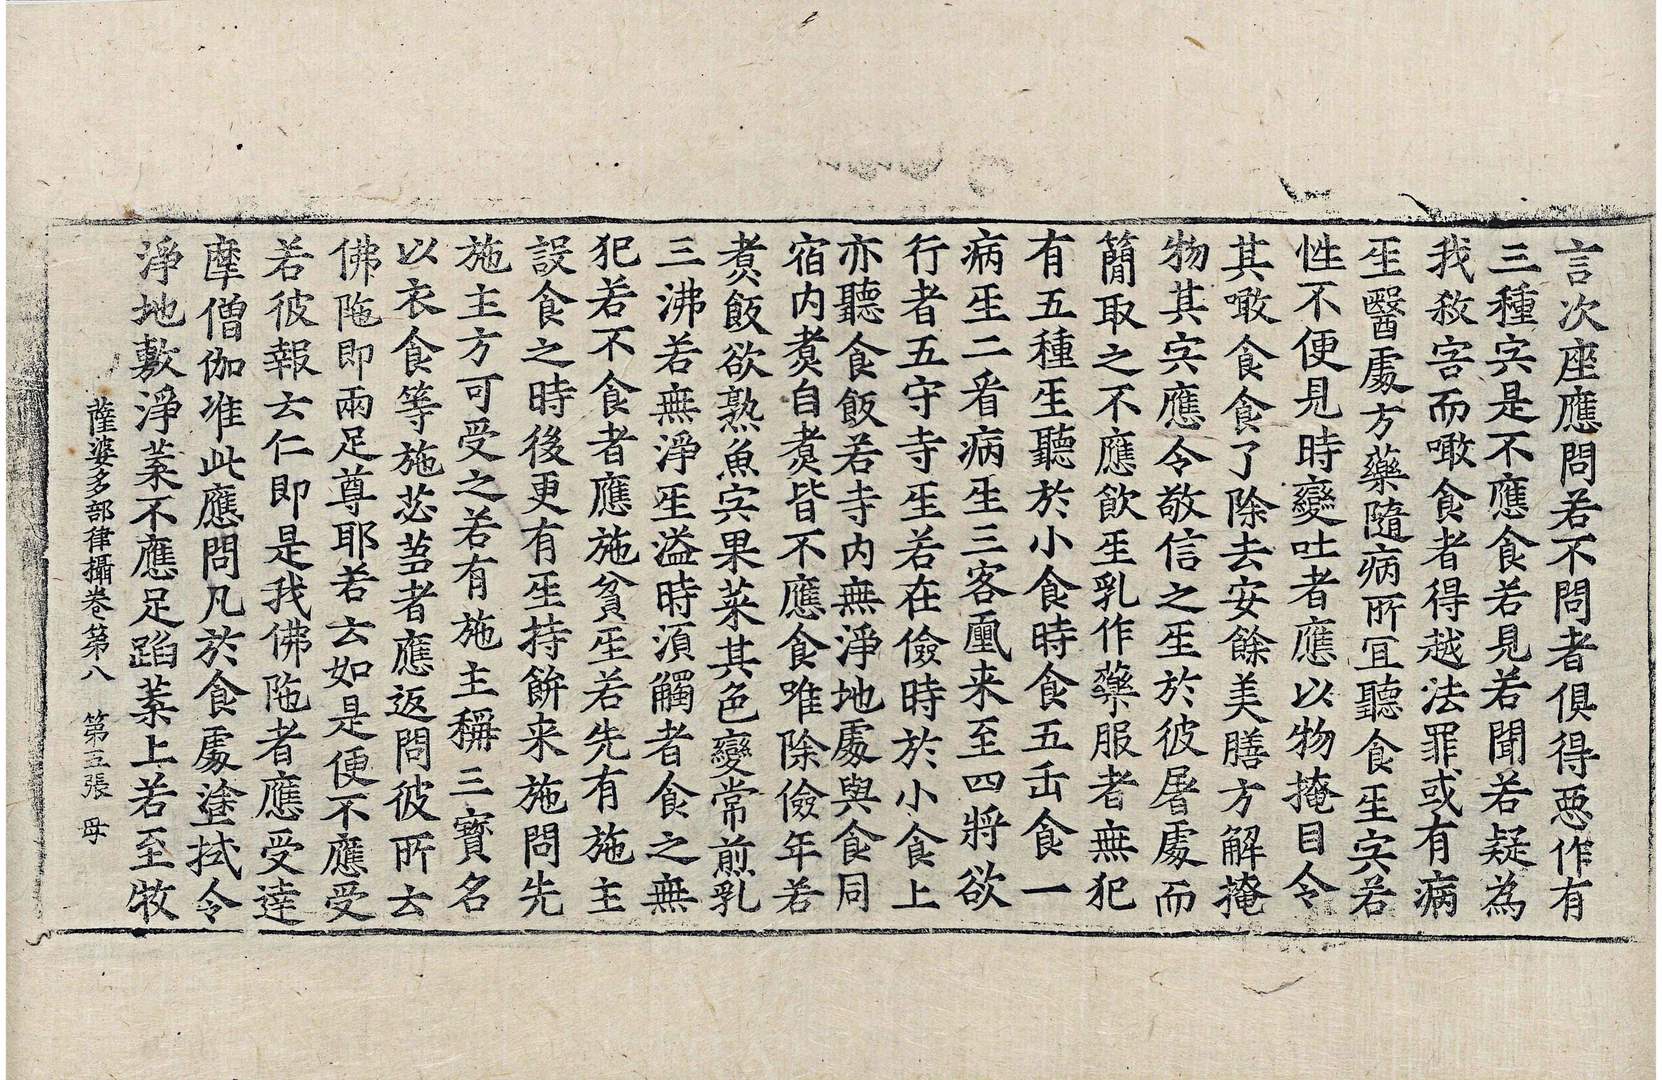 言次座應問若不問者俱得惡作有
三種宍是不應食若見若聞若疑為
我敘害而噉食者得越法罪或有病
𤯔醫處方藥隨病所冝聽食𤯔宍若
性不便見時變吐者應以物掩目令
其噉食食了除去安餘美膳方解掩
物其宍應令敬信之𤯔於彼屠處而
簡取之不應飲𤯔乳作藥服者無犯
有五種𤯔聽於小食時食五𠙺食一
病𤯔二看病𤯔三客𡔈来至四將欲
行者五守寺𤯔若在儉時於小食上
亦聽食飯若寺内無淨地處與食同
宿内煑自煑皆不應食唯除儉年若
煑飯欲熟魚宍果菜其色變常煎乳
三沸若無淨𤯔溢時湏觸者食之無
犯若不食者應施貧𤯔若先有施主
設食之時後更有𤯔持餅来施問先
施主方可受之若有施主稱三寶名
以衣食等施苾芻者應返問彼所云
佛陁即兩足尊耶若云如是便不應受
若彼報云仁即是我佛陁者應受達
摩僧伽准此應問凡於食處塗拭令
淨地敷淨葉不應足蹈葉上若至牧
薩婆多部律攝卷第八 第五張 母